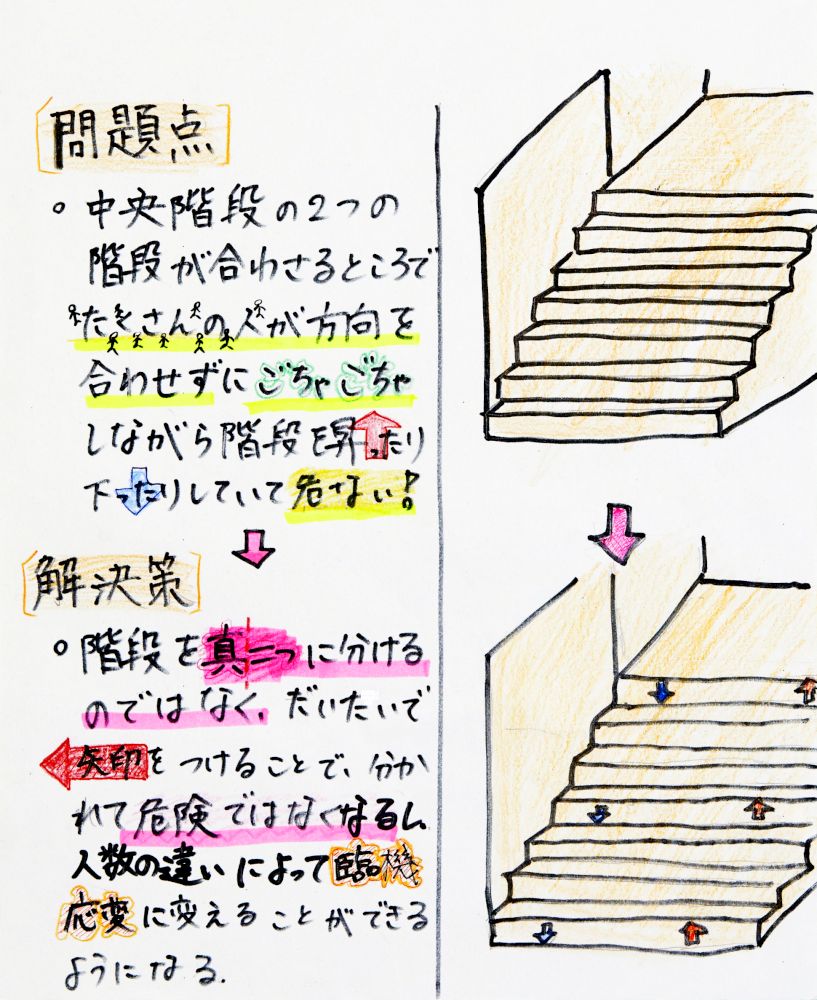 問題点
。中央階段の2つの
階段が合わさるところで
たくさんの人が方向を
合わせずにごちゃごちゃ
しながら階段を昇ったり
下ったりしていて危ない!
解決策
。階段を真二つに分ける
のではなく、だいたいで
矢印をつけることで、分か
れて危険ではなくなるし、
人数の違いによって臨機
応変に変えることができる
ようになる.